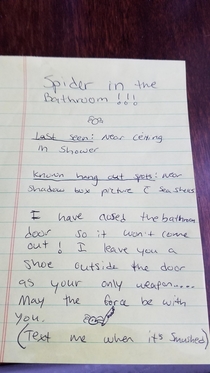 Spider in the
Bathroom !!!
Last seen: Near ceiling
in shower
Known hang out spots: near
shadow box picture & sea shells
I have closed the bathroom
door so it won't come
out! I leave you a
shoe outside the door
as your only weapon....
May the force be with
you.
(Text me when it's smushed)